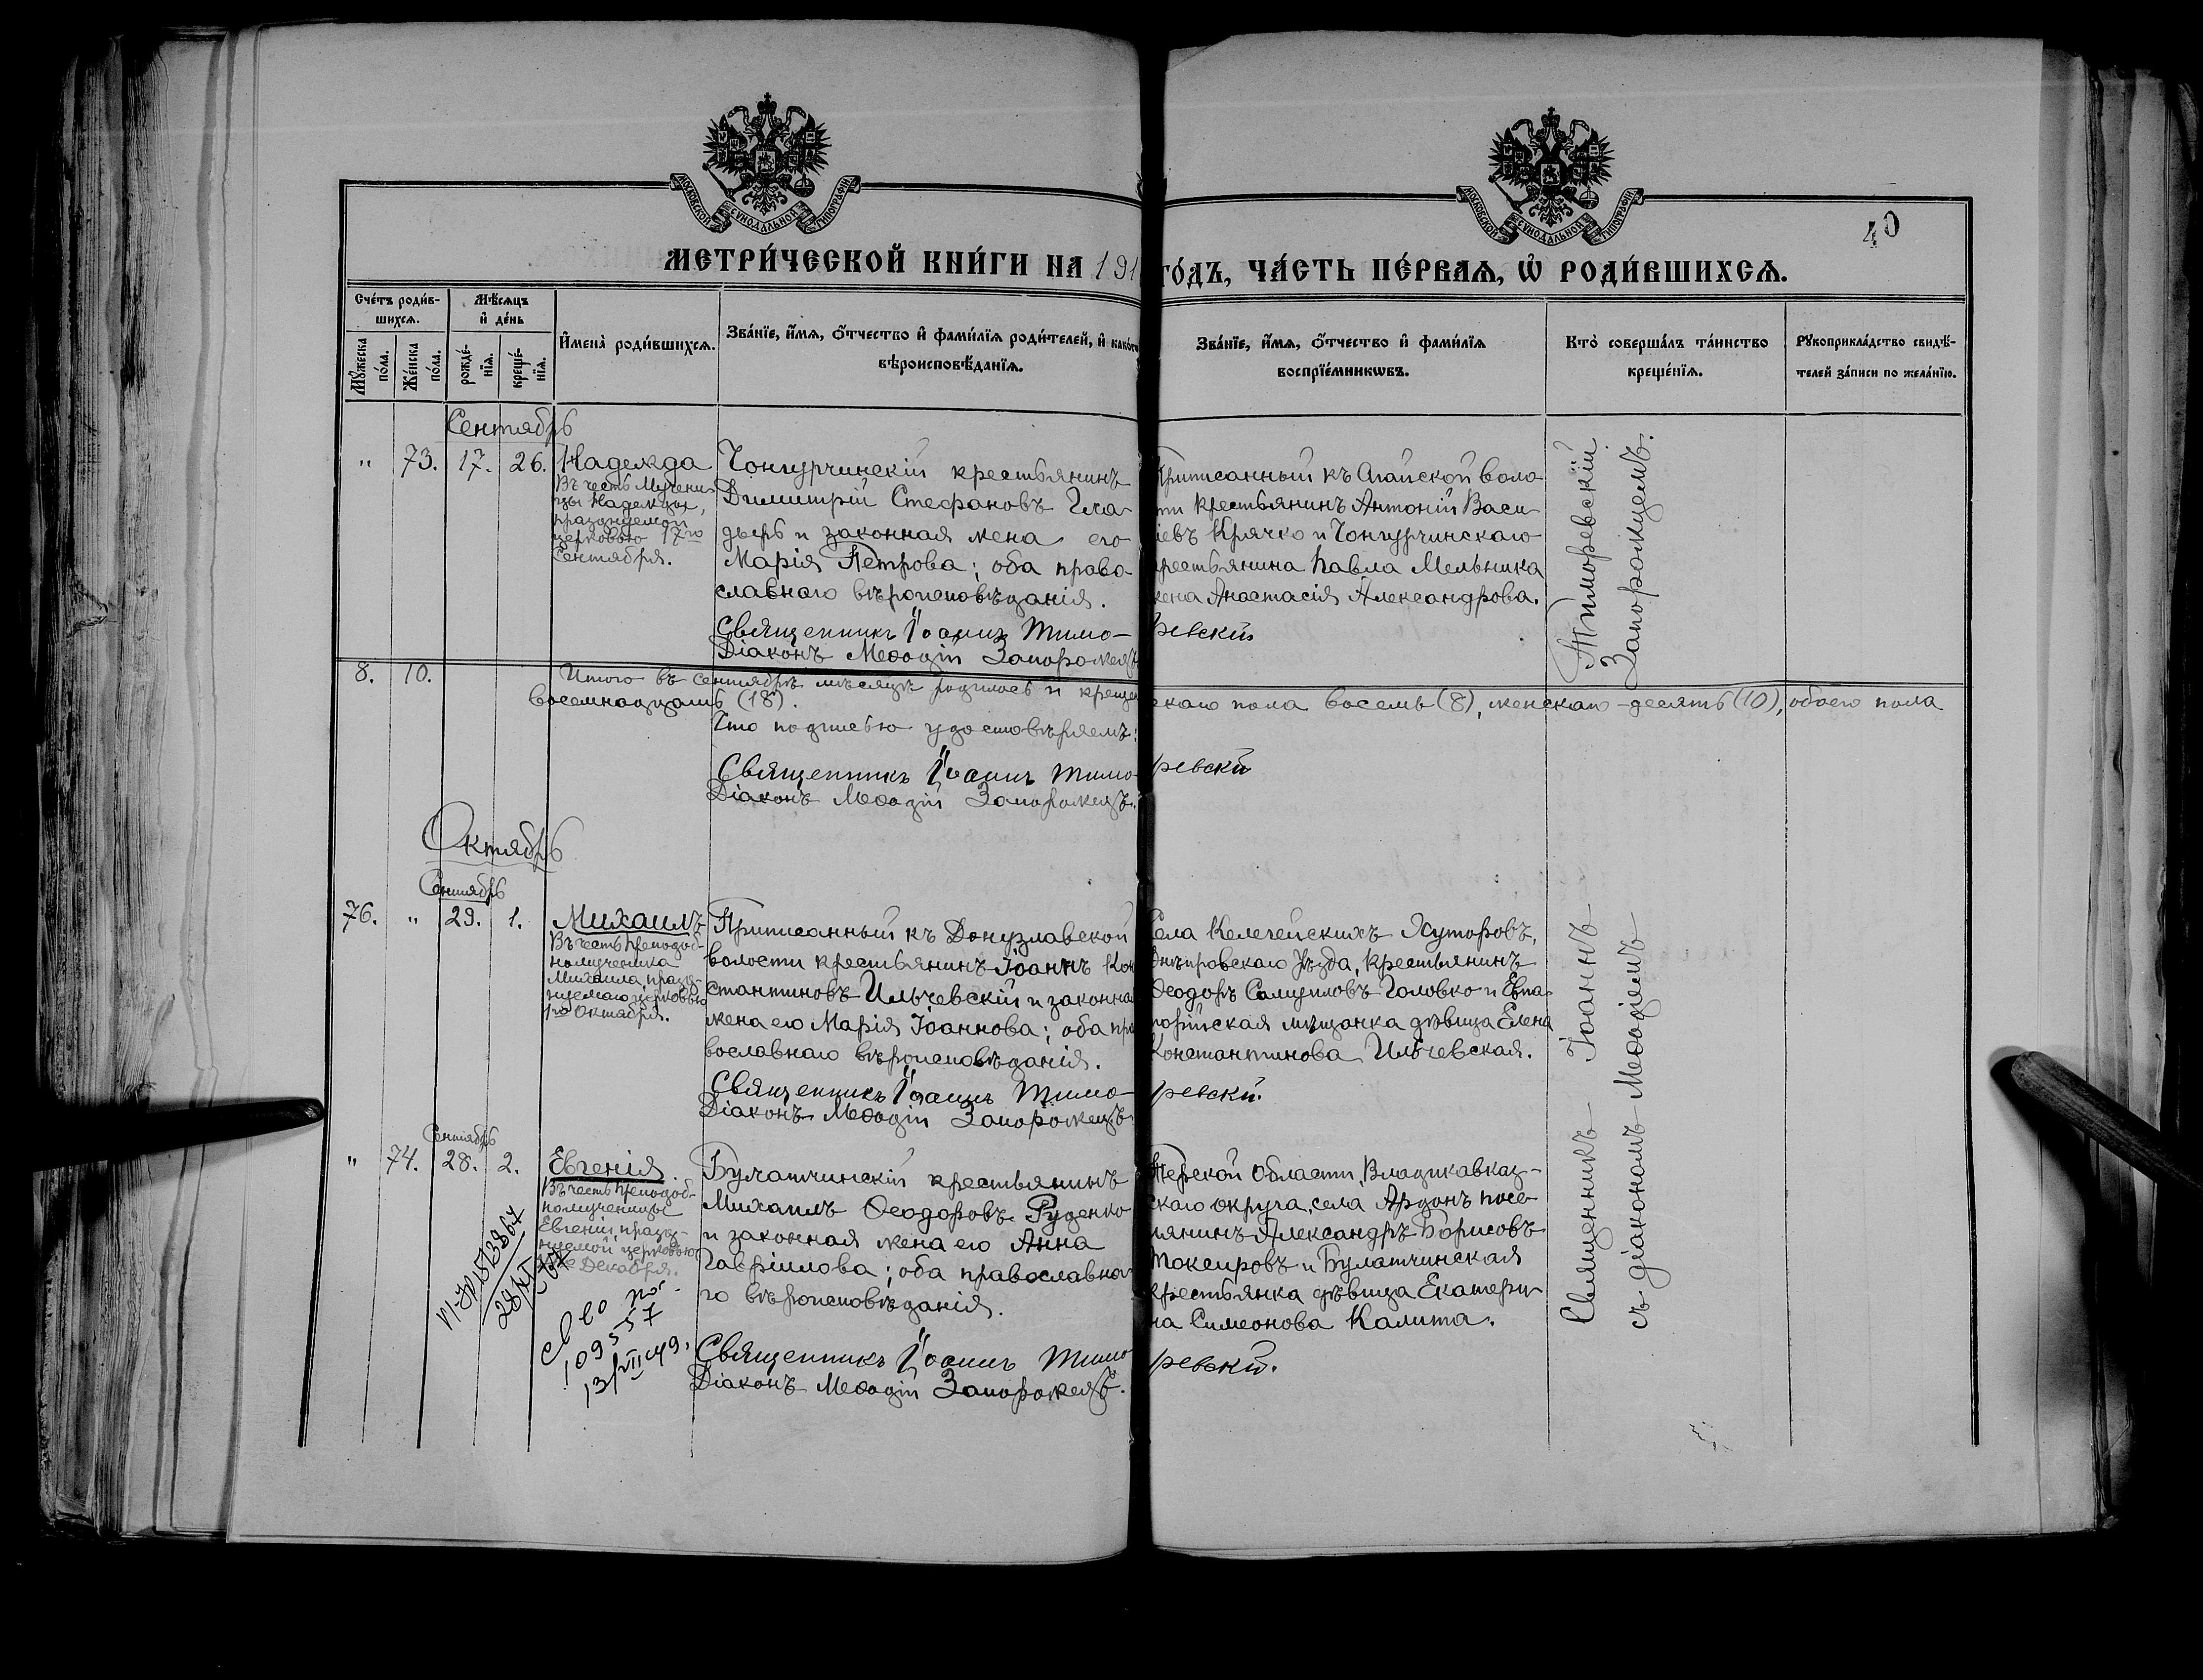 МОСКОВСКОЙ СѴНОДАЛЬНОЙ ТИПОГРАФІИ
МОСКОВСКОЙ СѴНОДАЛЬНОЙ ТИПОГРАФІИ
40
МЕТРИ́ЧЕСКОЙ КНИ́ГИ НА 191
ГО́ДЪ, ЧА́СТЬ ПЕ́РВАѦ, Ѡ҆ РОДИ́ВШИХСѦ.
Сче́тъ роди́в-
шихсѧ.
Мꙋ́жеска по́ла.
Же́нска по́ла.
Мѣ́сѧцъ
и҆ де́нь
рожде́-
нїѧ.
креще́-
нїѧ.
И҆мена̀ роди́вшихсѧ.
Зва́нїе, и҆́мѧ, ѻ҆́тчество и҆ фами́лїѧ роди́телей, и҆ како́гѡ
вѣроисповѣ́данїѧ.
Зва́нїе, и҆́мѧ, ѻ҆́тчество и҆ фами́лїѧ
воспрїе́мникѡвъ.
Кто̀ соверша́лъ та́инство
креще́нїѧ.
Рꙋкоприкла́дство свидѣ́-
телей за́писи по жела́нїю.
Сентябрь
" 73. 17. 26.
Надежда
Въ честь Мучени-
цы Надежды,
празднуемой
церковью 17го
Сентября.
Чонгурчинскій крестьянинъ
Димитрій Стефановъ Гла-
дырь и законная жена его
Марія Петрова; оба право-
славнаго вѣроисповѣданія.
Священникъ Іоаннъ Тимо-
Діаконъ Меѳодій Запорожецъ
Приписанный къ Агайской воло
ти крестьянинъ Антоній Васи
іевъ Крячко и Чонгурчинскаго
рестьянина Павла Мельника
жена Анастасія Александрова.
ревскій
Тиморевскій
Запорожцемъ.
8. 10.
Итого въ Сентябрѣ мѣсяцѣ родилось и крещен
скаго пола восемь (8), женскаго - десять (10), обоего пола
восемнадцать (18).
Что подписью удостовѣряемъ:
Священникъ Іоаннъ Тимо
ревскій
Діаконъ Меѳодій Запорожецъ.
Октябрь
Сентябрь
76. " 29. 1.
Михаилъ
Въ честь Преподоб-
номученика
Михаила, празд-
нуемаго церковью
1го Октября.
Приписанный къ Донузлавской
волости крестьянинъ Іоаннъ Кон
стантиновъ Ильчевскій и законна
жена его Марія Іоаннова; оба пра
вославнаго вѣроисповѣданія.
Священникъ Іоаннъ Тимо-
Діаконъ Меѳодій Запорожецъ.
Села Келегейскихъ Хуторовъ,
Днѣпровскаго Уѣзда, крестьянинъ
Ѳеодоръ Самуиловъ Головко и Евпа-
торійская мѣщанка дѣвица Елена
Константинова Ильчевская.
ревскій.
Священникъ Іоаннъ
съ діакономъ Меѳодіемъ
Сентябрь
" 74. 28. 2.
Евгенія
Въ честь Преподоб-
номученицы
Евгеніи, празд-
нуемой церковью
Декабря.
109557
13/VII 49.
Булатчинскій крестьянинъ
Михаилъ Ѳеодоровъ Руденко
и законная жена его Анна
Гавріилова; оба православна-
го вѣроисповѣданія.
Священникъ Іоаннъ Тимо
Діаконъ Меѳодій Запорожецъ.
Терской Области, Владикавказ-
скаго округа, села Ардонъ посе-
лянинъ Александръ Борисовъ
Токсировъ и Булатчинская
крестьянка дѣвица Екатери-
на Симеонова Калита.
ревскій.